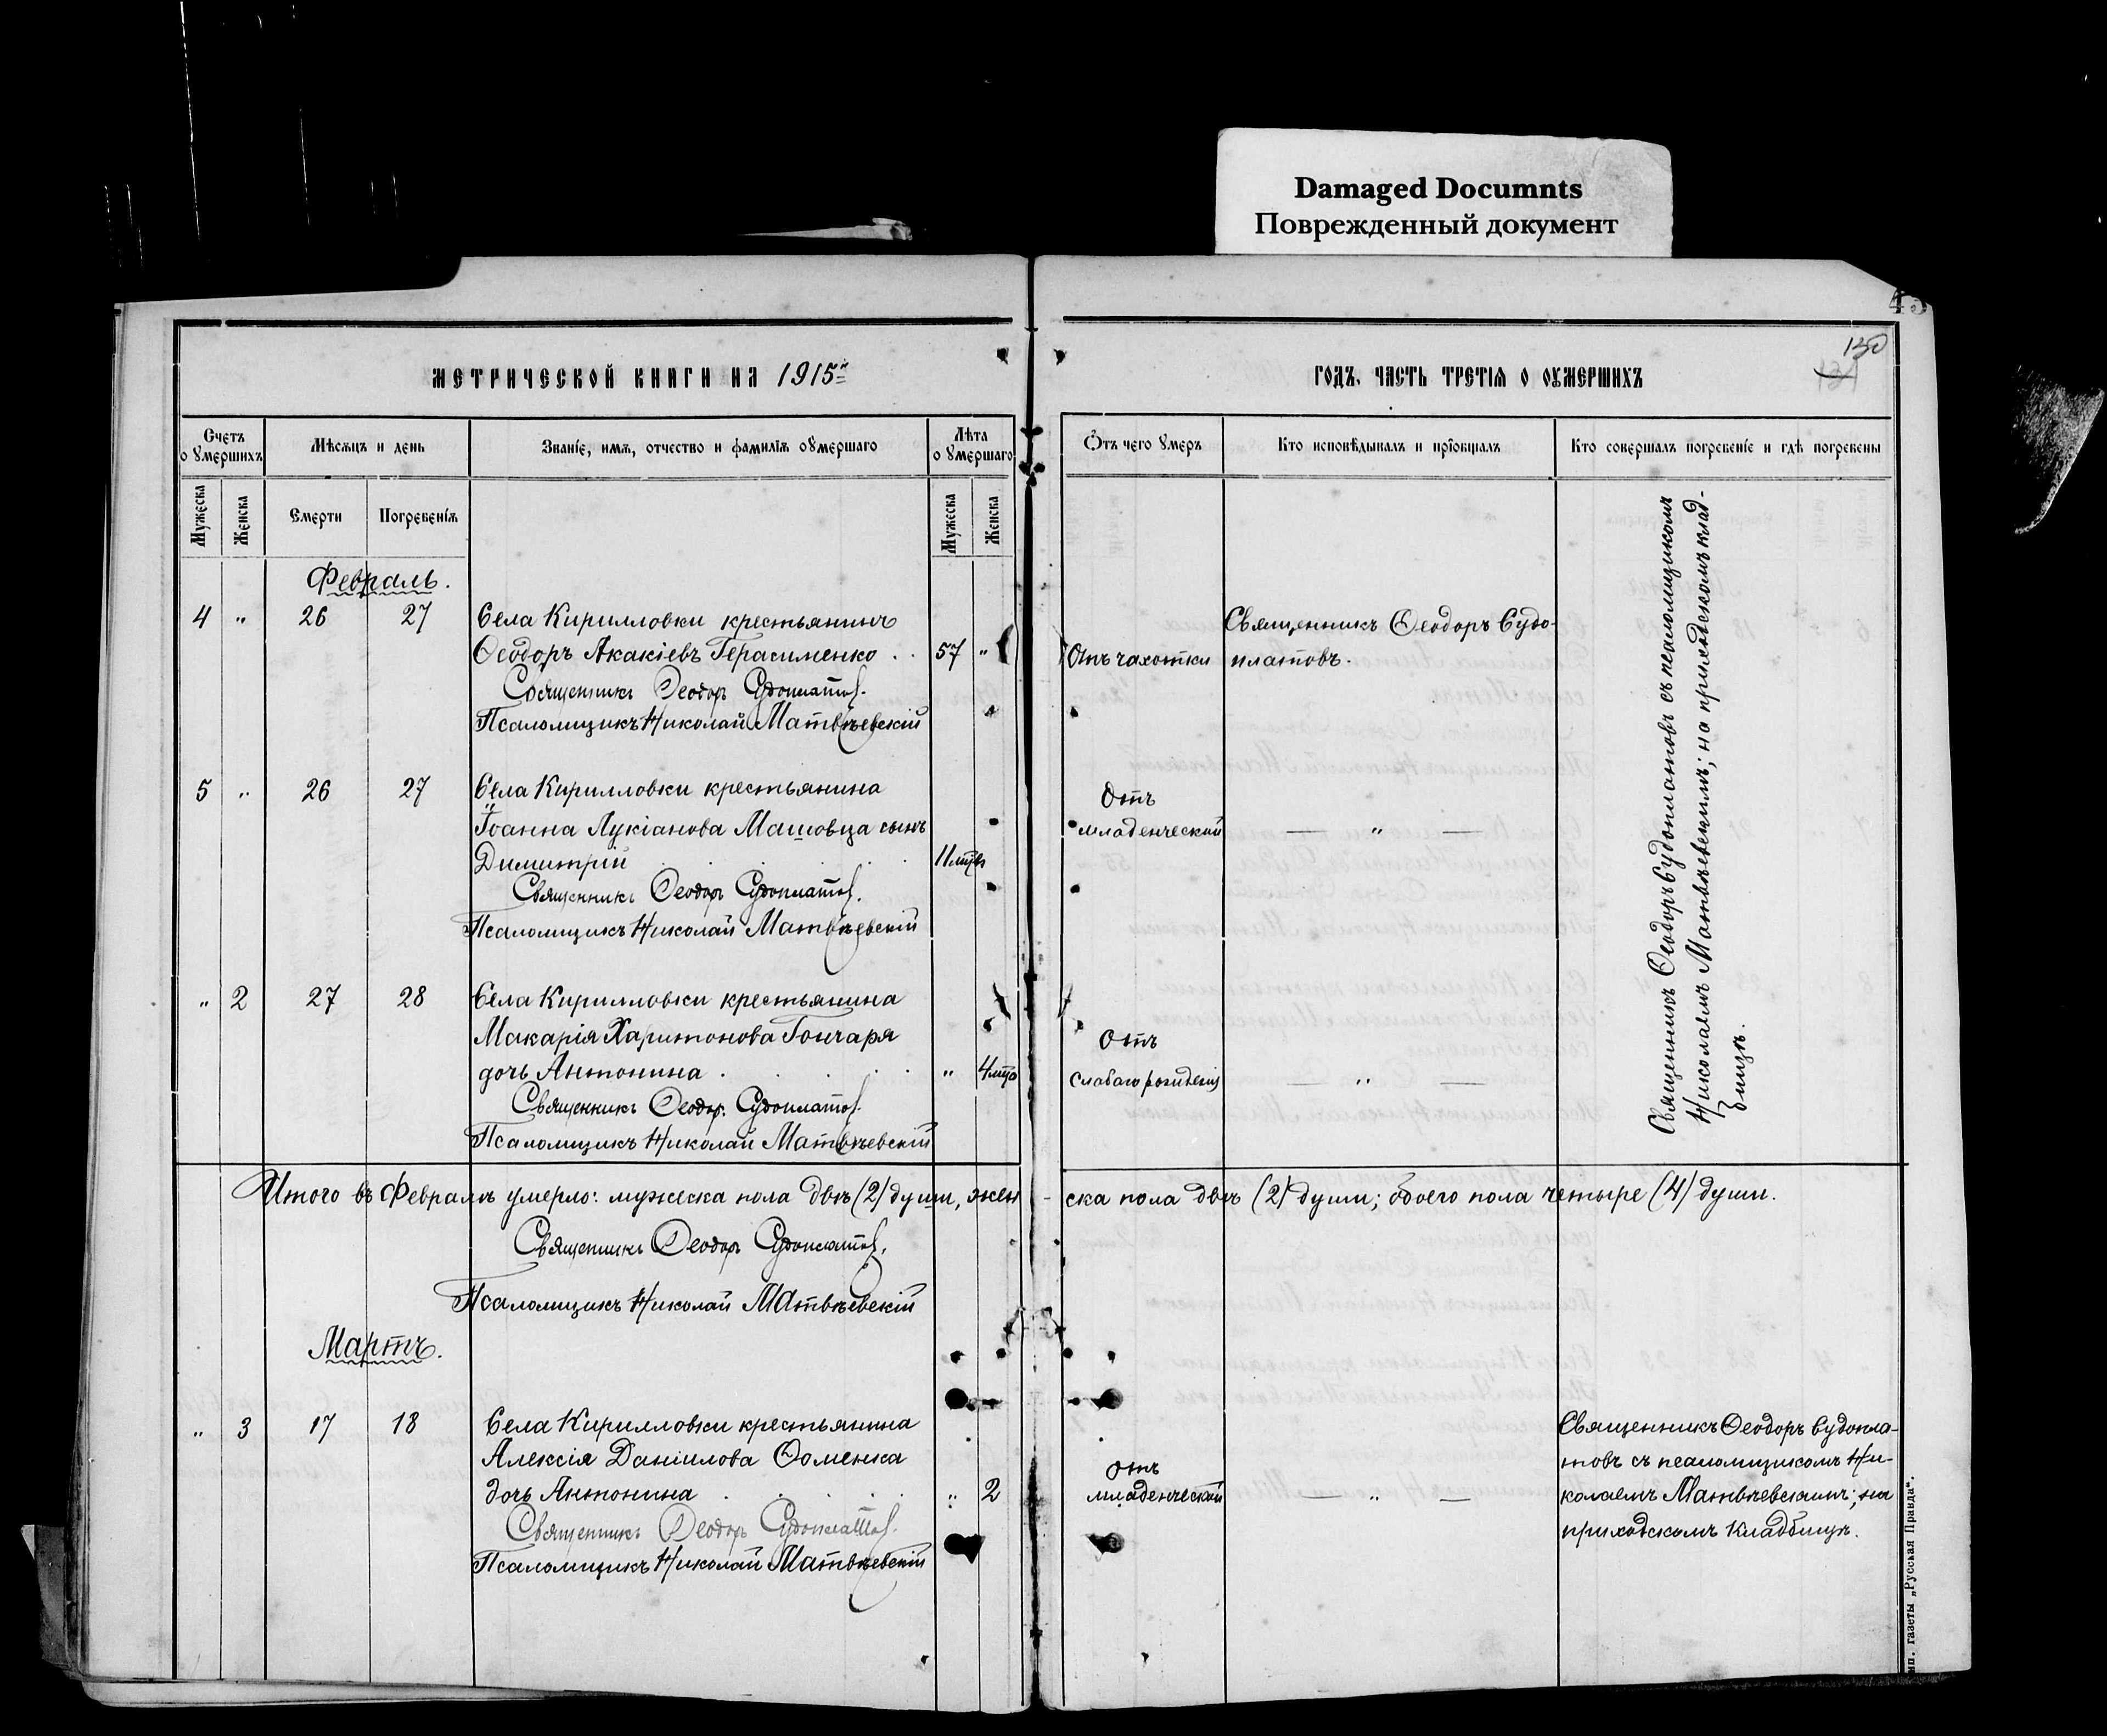 Damaged Documnts
Поврежденный документ
130
131
МЕТРИЧЕСКОЙ КНИГИ НА 1915й
ГОДЪ, ЧАСТЬ ТРЕТІЯ О ОУМЕРШИХЪ
Счетъ оумершихъ
Мѣсяцъ и день
Званіе, имя, отчество и фамилія оумершаго
Лѣта оумершаго
Отъ чего умеръ
Кто исповѣдывалъ и пріобщалъ
Кто совершалъ погребеніе и гдѣ погребены
Мужеска
Женска
Смерти
Погребенія
Мужеска
Женска
Февраль.
4 " 26 27 Села Кирилловки крестьянинъ
Ѳеодоръ Акакіевъ Герасименко . . 57 "
Отъ чахотки
Священникъ Ѳеодоръ Судо-
платовъ.
Священникъ Ѳеодоръ Судоплатов.
Псаломщикъ Николай Матвѣевскій
5 " 26 27 Села Кирилловки крестьянина
Іоанна Лукіанова Машовца сынъ
Димитрій . . . . 11 мѣс
Отъ
младенческой — " —
Священникъ Ѳеодоръ Судоплатов.
Псаломщикъ Николай Матвѣевскій
" 2 27 28 Села Кирилловки крестьянина
Макарія Харитонова Гончаря
дочь Антонина . . . . " 4 мѣс
Отъ
слабаго рожденія — " —
Священникъ Ѳеодор. Судоплатов.
Псаломщикъ Николай Матвѣевскій
Священникъ Ѳеодоръ Судоплатовъ съ псаломщикомъ
Николаемъ Матвѣевскимъ; на приходскомъ клад-
бищѣ.
Итого въ Февралѣ умерло: мужеска пола двѣ (2) души, жен-
ска пола двѣ (2) души; обоего пола четыре (4) души.
Священникъ Ѳеодоръ Судоплатов.
Псаломщикъ Николай Матвѣевскій
Мартъ.
" 3 17 18 Села Кирилловки крестьянина
Алексія Даніилова Ѳоменка
дочь Антонина . . . . " 2
Отъ
младенческой — " —
Священникъ Ѳеодоръ Судопла-
товъ съ псаломщикомъ Ни-
колаемъ Матвѣевскимъ; на
приходскомъ кладбищѣ.
Священникъ Ѳеодоръ Судоплатов.
Псаломщикъ Николай Матвѣевскій
газеты „Русская Правда“.